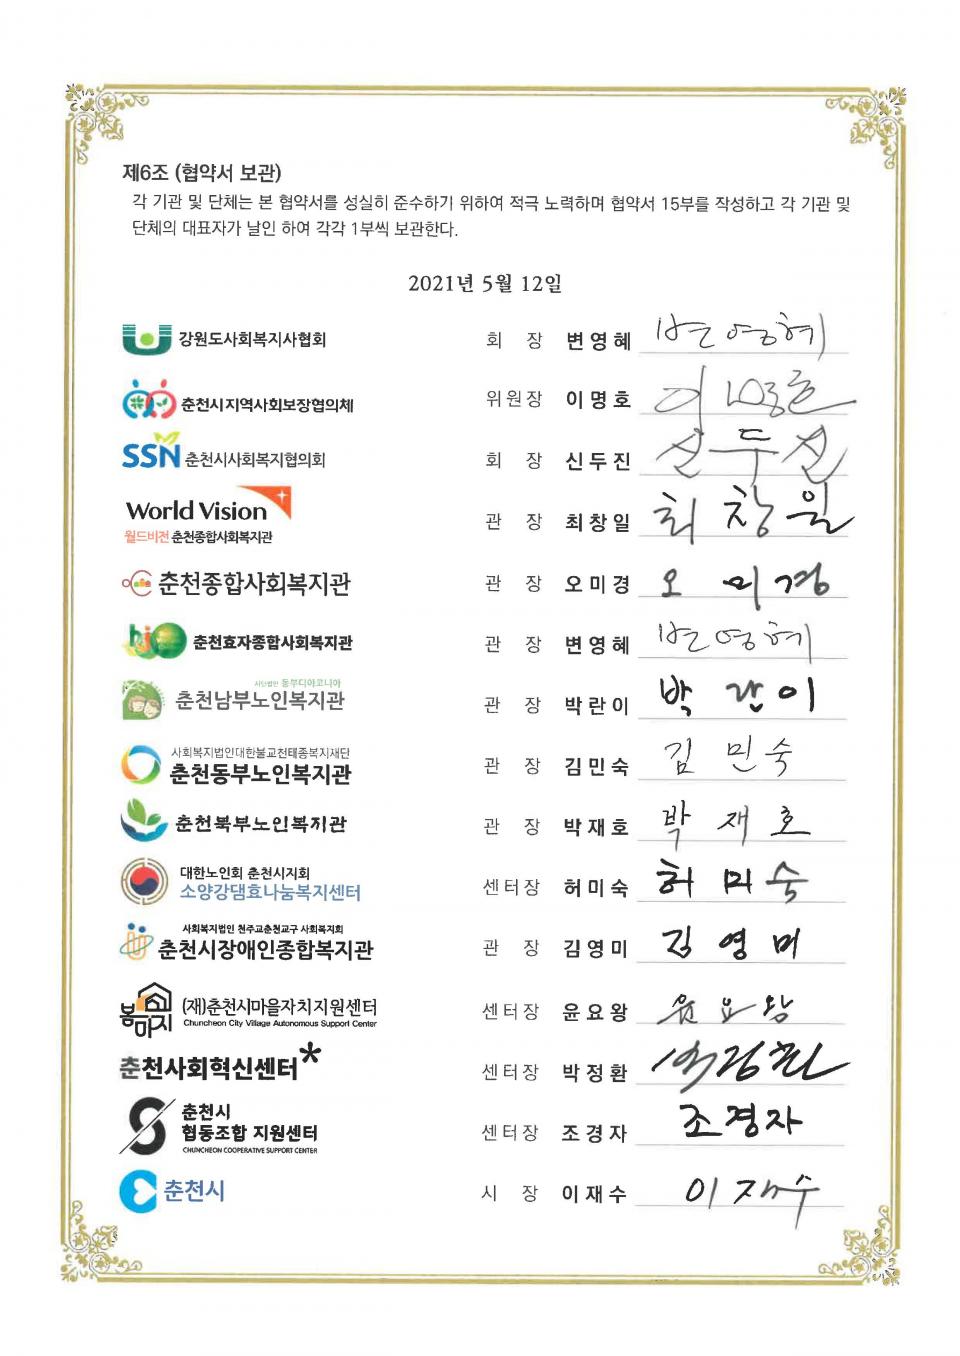 제6조 (협약서 보관)
각 기관 및 단체는 본 협약서를 성실히 준수하기 위하여 적극 노력하며 협약서 15부를 작성하고 각 기관 및
단체의 대표자가 날인 하여 각각 1부씩 보관한다.
2021년 5월 12일
강원도사회복지사협회 회 장 변영혜 변영혜
춘천시지역사회보장협의체 위원장 이명호 이명호
SSN 춘천시사회복지협의회 회 장 신두진 신두진
World Vision
월드비전 춘천종합사회복지관 관 장 최창일 최창일
춘천종합사회복지관 관 장 오미경 오 미경
hjo 춘천효자종합사회복지관 관 장 변영혜 변영혜
사단법인 동부디아코니아
춘천남부노인복지관 관 장 박란이 박 란이
사회복지법인대한불교천태종복지재단
춘천동부노인복지관 관 장 김민숙 김 민숙
춘천북부노인복지관 관 장 박재호 박 재 호
대한노인회 춘천시지회
소양강댐효나눔복지센터 센터장 허미숙 허 미 숙
사회복지법인 천주교춘천교구 사회복지회
춘천시장애인종합복지관 관 장 김영미 김 영 미
봄마지 (재)춘천시마을자치지원센터 센터장 윤요왕 윤요왕
Chuncheon City Village Autonomous Support Center
춘천사회혁신센터* 센터장 박정환 박정환
춘천시
협동조합 지원센터 센터장 조경자 조경자
CHUNCHEON COOPERATIVE SUPPORT CENTER
춘천시 시 장 이재수 이재수